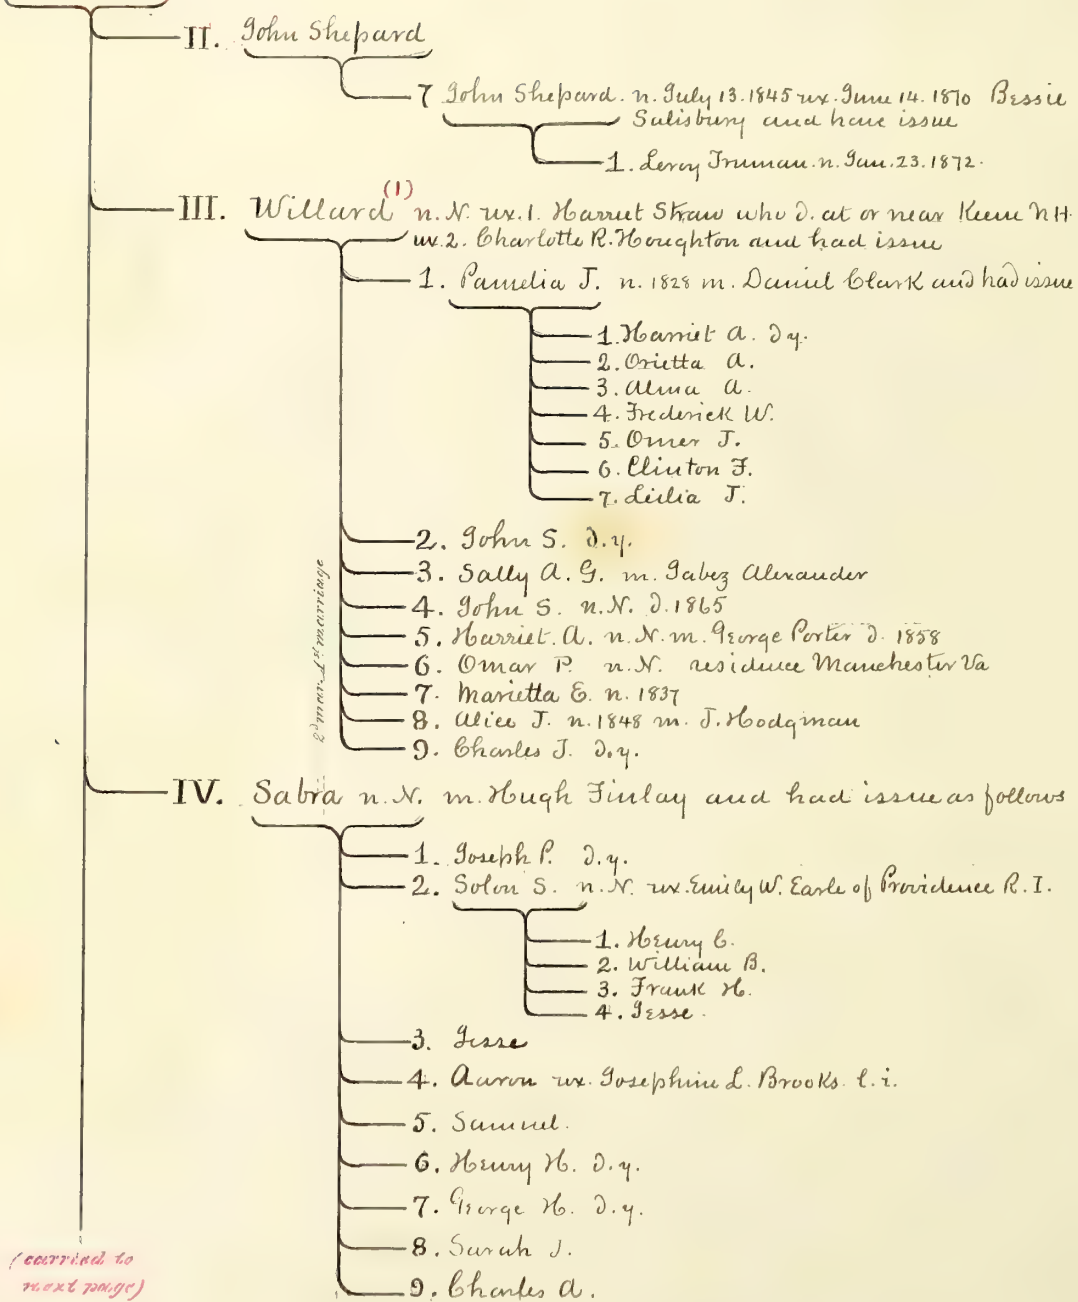 II. John Shepard
7 John Shepard. n. July 13. 1845 ux. June 14. 1870 Bessie
Salisbury and have issue
1. Leroy Truman. n. Jan. 23. 1872.
III. Willard (1) n. N. ux. 1. Harriet Straw who d. at or near Keene N H.
ux. 2. Charlotte R. Houghton and had issue
1. Pamelia J. n. 1828 m. Daniel Clark and had issue
1. Harriet A. d y.
2. Orietta A.
3. Alma A.
4. Frederick W.
5. Omer J.
6. Clinton F.
7. Leilia J.
2. John S. d.y.
3. Sally A. G. m. Jabez Alexander
4. John S. n. N. d. 1865
5. Harriet. A. n. N. m. George Porter d. 1858
6. Omar P. n. N. residence Manchester Va
7. Marietta E. n. 1837
2d mar. 1st marriage
8. Alice J. n. 1848 m. J. Hodgman
9. Charles J. d.y.
IV. Sabra n. N. m. Hugh Finlay and had issue as follows
1. Joseph P. d.y.
2. Solon S. n. N. ux. Emily W. Earle of Providence R. I.
1. Henry C.
2. William B.
3. Frank H.
4. Jesse.
3. Jesse
4. Aaron ux. Josephine L. Brooks. l. i.
5. Samuel.
6. Henry H. d.y.
7. George H. d.y.
8. Sarah J.
9. Charles A.
(carried to
next page)